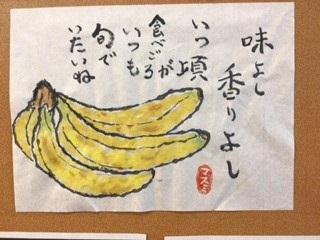 味よし
香りよし
いつ頃が
食べごろ
いつも
旬で
いたいね
マスミ